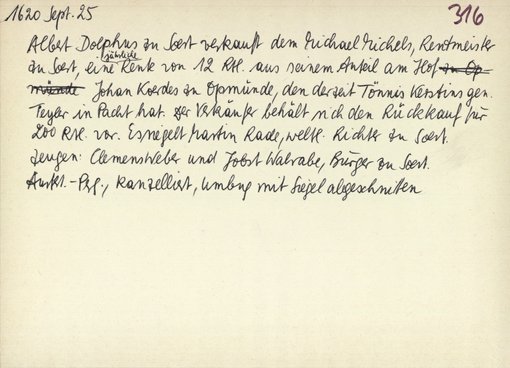 1620 Sept. 25 316
Albert Dolphus zu Soest verkauft dem Michael Michels, Rentmeister
zu Soest, eine jährliche Rente von 12 Rtl. aus seinem Anteil am Hof zu Op
münde Johan Koerdes zu Opmünde, den derzeit Tönnis Kerstins gen.
Teyler in Pacht hat. Der Verkäufer behält sich den Rückkauf für
200 Rtl. vor. Es siegelt Martin Rade, weltl. Richter zu Soest.
Zeugen: Clemens Weber und Jobst Walrabe, Bürger zu Soest.
Ausf.-Pg., kanzelliert, Umbug mit Siegel abgeschnitten